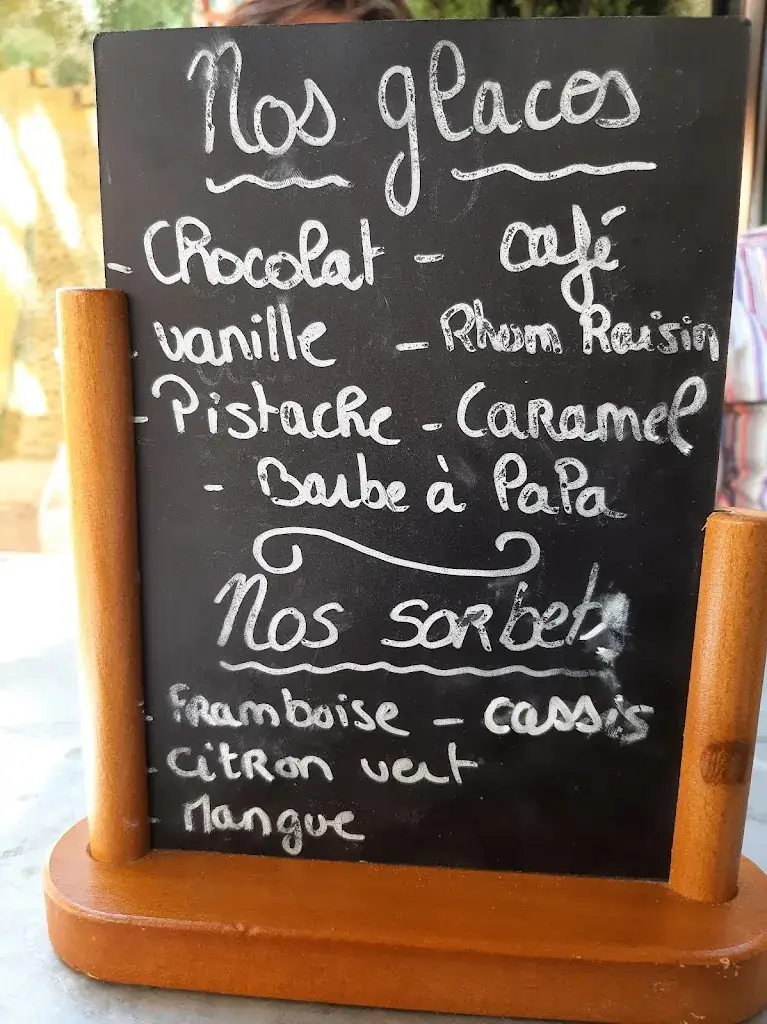 Nos glaces
- Chocolat - café
vanille - Rhum Raisin
- Pistache - Caramel
- Barbe à PaPa
Nos sorbets
- Framboise - cassis
- Citron vert
- Mangue